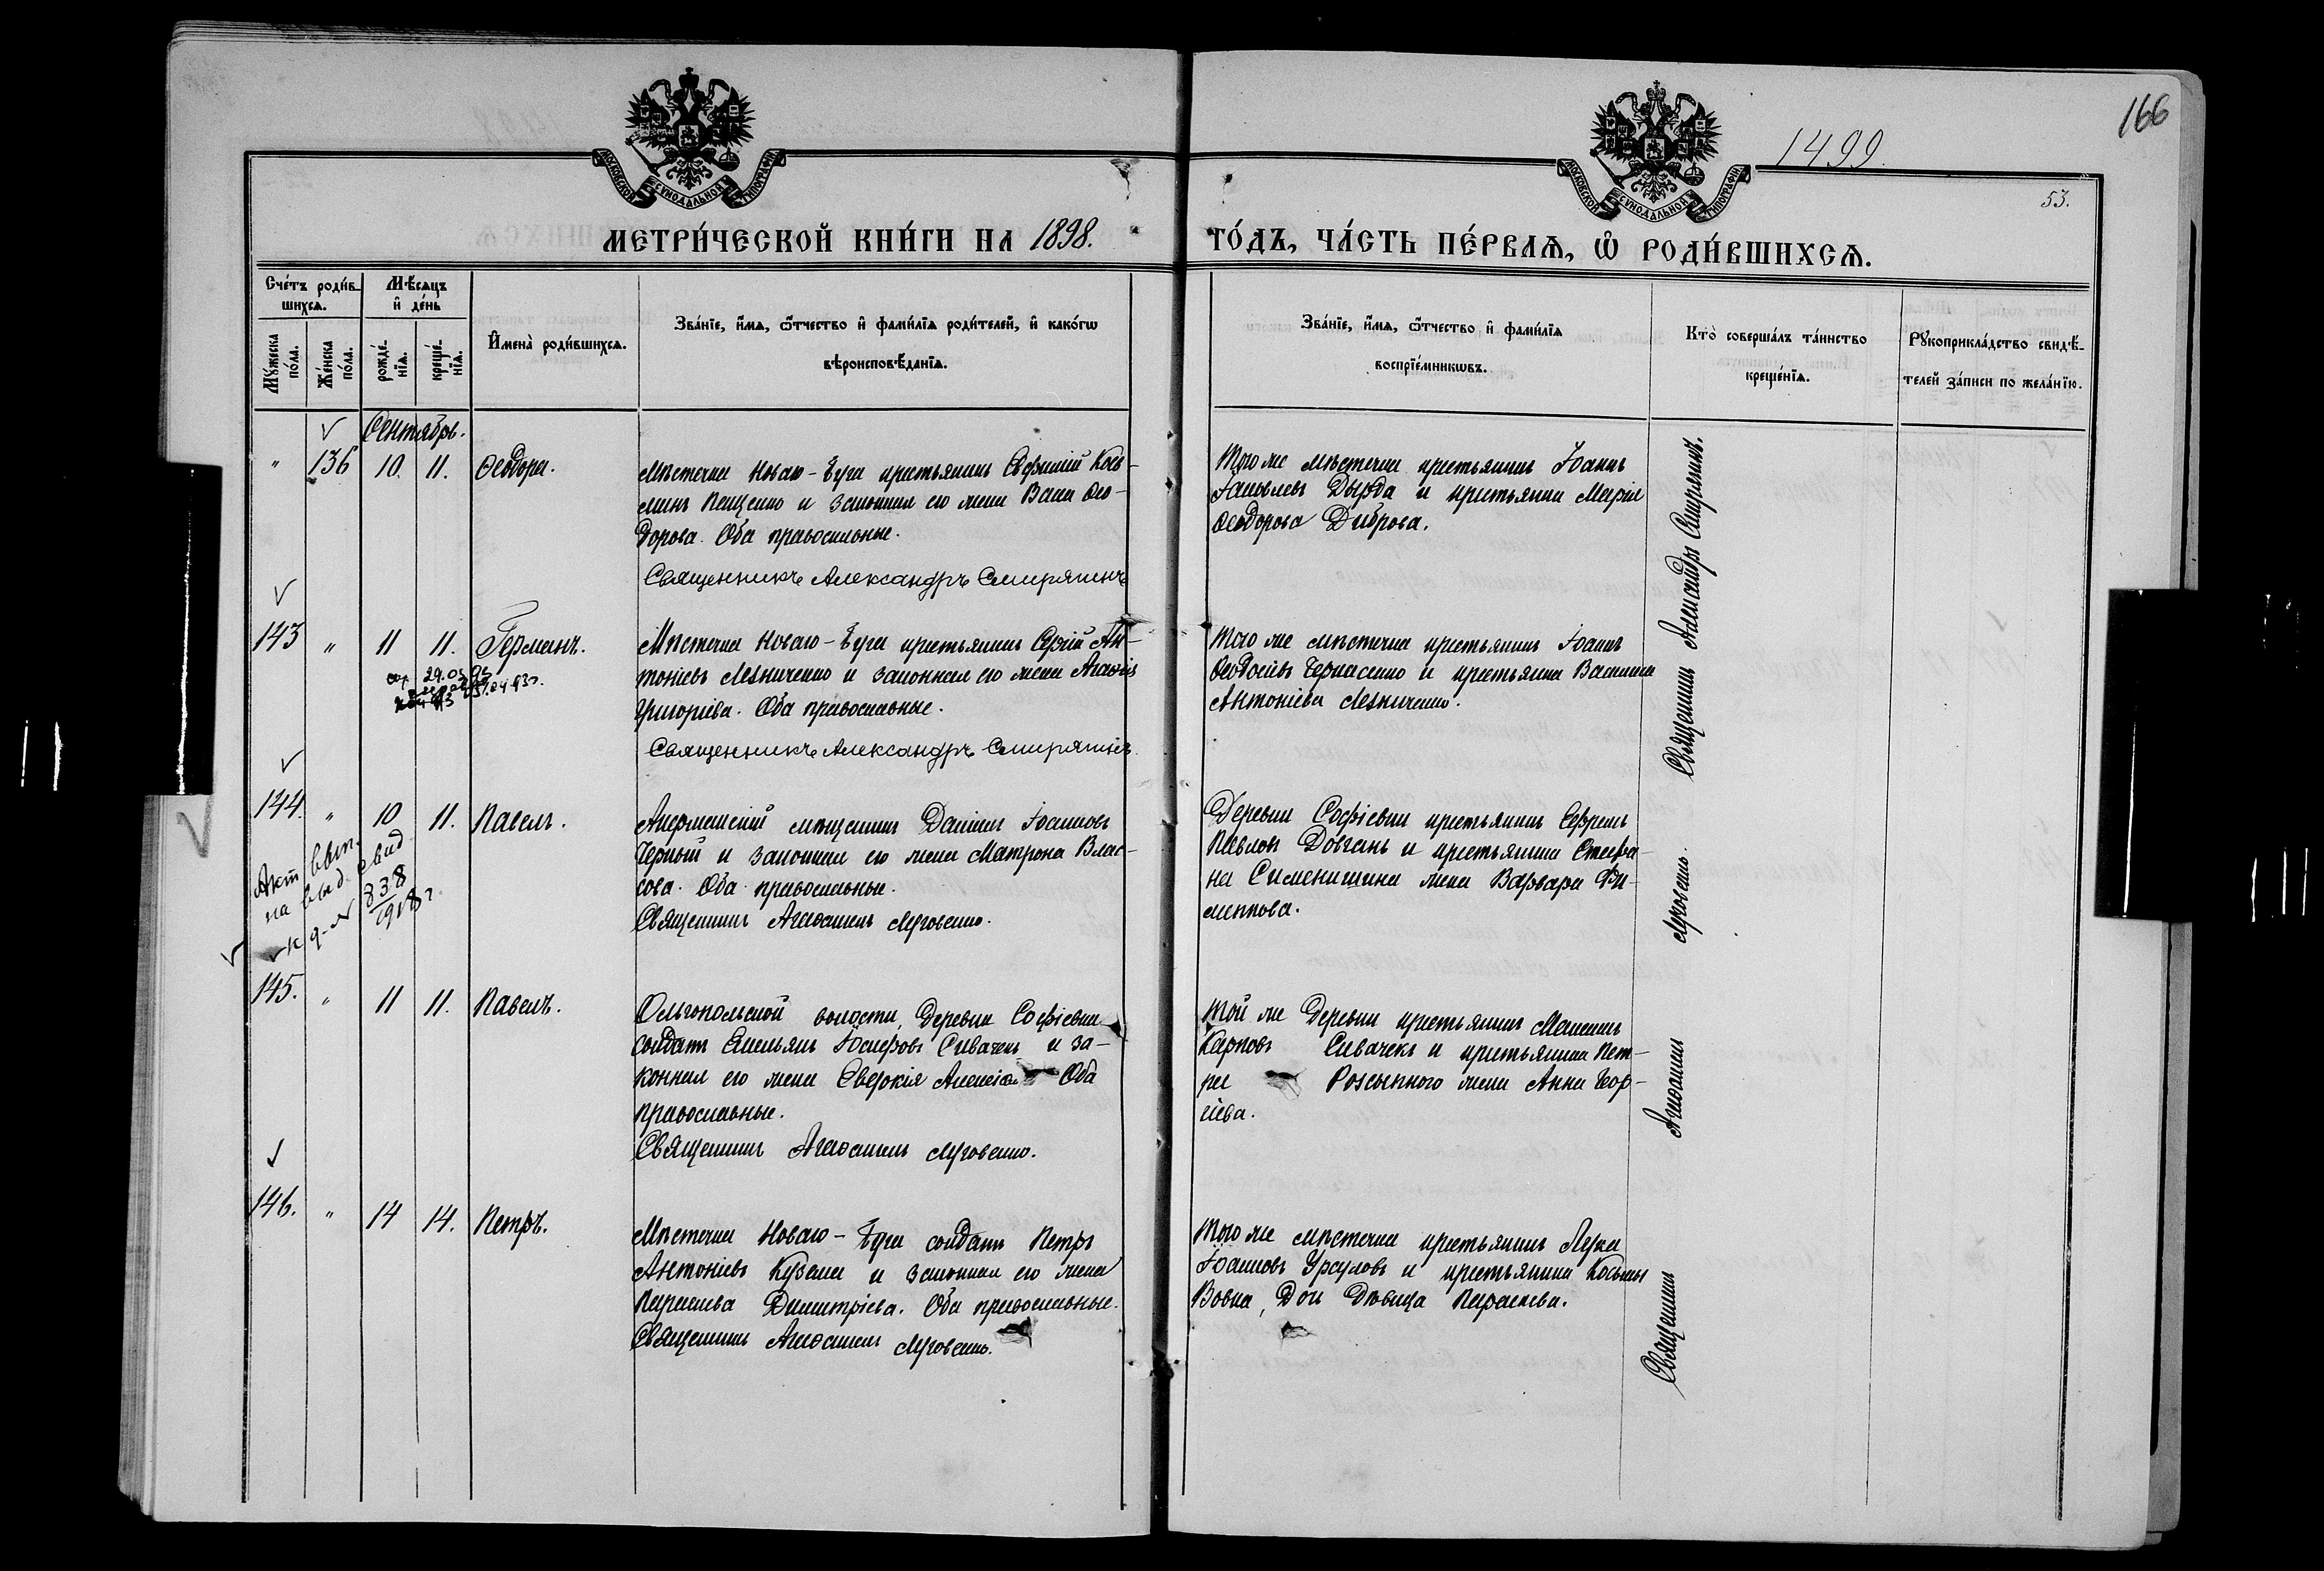 166
1499.
53.
МОСКОВСКОЙ СѴНОДАЛЬНОЙ ТИПОГРАФІИ
МОСКОВСКОЙ СѴНОДАЛЬНОЙ ТИПОГРАФІИ
МЕТРИ́ЧЕСКОЙ КНИ́ГИ НА 1898.
ГО́ДЪ, ЧА́СТЬ ПЕ́РВАѦ, Ѡ҆ РОДИ́ВШИХСѦ.
Сче́тъ роди́в-
шихсѧ.
Мѣ́сѧцъ
и҆ де́нь
Мꙋ́жеска
по́ла.
Же́нска
по́ла.
рожде́-
нїѧ.
креще́-
нїѧ.
И҆мена̀ роди́вшихсѧ.
Зва́нїе, и҆́мѧ, ѻ҆́тчество и҆ фами́лїѧ роди́телей, и҆ како́гѡ
вѣроисповѣ́данїѧ.
Зва́нїе, и҆́мѧ, ѻ҆́тчество и҆ фами́лїѧ
воспрїе́мникѡвъ.
Кто̀ соверша́лъ та́инство
креще́нїѧ.
Рꙋкоприкла́дство свидѣ́-
телей за́писи по жела́нїю.
Сентябрь.
" 136 10. 11. Ѳеодора.
Мѣстечка Новаго-Буга крестьянинъ Евфимій Кось-
минъ Пащенко и законная его жена Васса Ѳео-
дорова. Оба православные.
Священникъ Александръ Смирятинъ
Того же мѣстечка крестьянинъ Іоаннъ
Іаковлевъ Дырда и крестьянка Марія
Ѳеодорова Диброва.
Священникъ Александръ Смирятинъ.
143 " 11 11. Германъ.
Мѣстечка Новаго-Буга крестьянинъ Сергій Ан-
тоніевъ Лезниченко и законная его жена Агаѳія
Григоріева. Оба православные.
Священникъ Александръ Смирятинъ
Того же мѣстечка крестьянинъ Іоаннъ
Ѳеодосіевъ Черкасенко и крестьянка Васса
Антоніева Лезниченко.
144. " 10 11. Павелъ.
Акт вып.
на выд. свид.
к д-л 338
1908 г.
Аккерманскій мѣщанинъ Даніилъ Іоанновъ
Черный и законная его жена Матрона Влас-
сова. Оба православные.
Священникъ Агаѳангелъ Луговенко.
Деревни Софіевки крестьянинъ Ефремъ
Павловъ Довгань и крестьянина Стефа-
на Симонишина жена Варвара Фи-
липпова.
145. " 11 11. Павелъ.
Ольгопольской волости, деревни Софіевки
солдатъ Емельянъ Іосифовъ Сивачекъ и за-
конная его жена Евдокія Алексіева Оба
православные.
Священникъ Агаѳангелъ Луговенко.
Той же деревни крестьянинъ Максимъ
Карповъ Сивачекъ и крестьянина Пет-
ра Розсыпного жена Анна Геор-
гіева.
146. " 14 14. Петръ.
Мѣстечка Новаго-Буга солдатъ Петръ
Антоніевъ Кузема и законная его жена
Параскева Димитріева. Оба православные.
Священникъ Агаѳангелъ Луговенко.
Того же мѣстечка крестьянинъ Лука
Іоанновъ Урсуловъ и крестьянина Косьмы
Вовка, дочь дѣвица Параскева.
Священникъ Агаѳангелъ Луговенко.